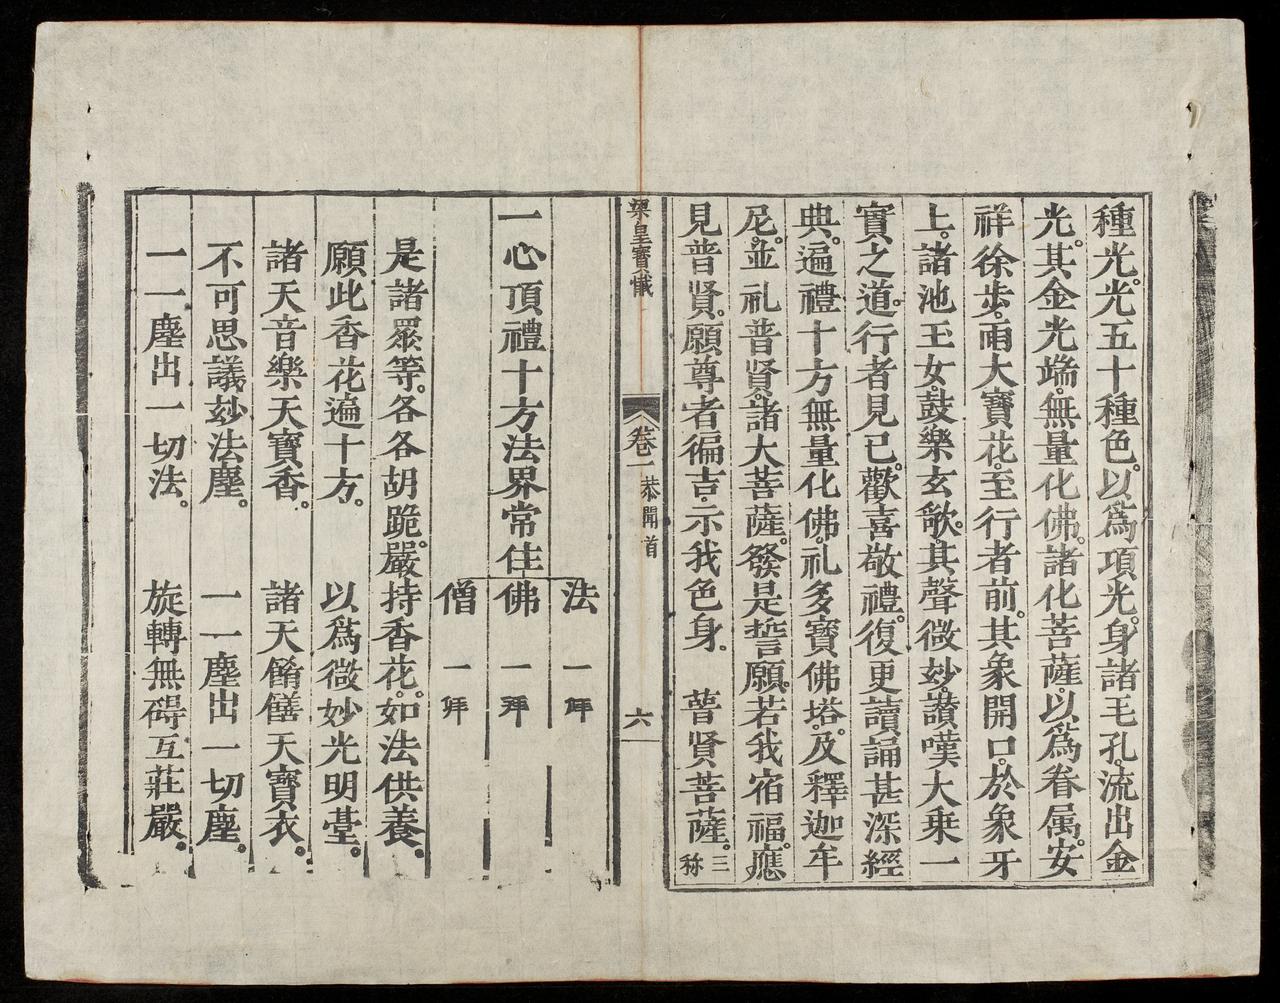 種光。光五十種色。以爲項光。身諸毛孔。流出金
光。其金光端。無量化佛。諸化菩薩。以爲眷属。安
祥徐步。雨大寶花。至行者前。其象開口。於象牙
上。諸池王女。鼓樂玄歌。其聲微妙。讃嘆大乘一
實之道。行者見已。歡喜敬禮。復更讀誦甚深經
典。遍禮十方無量化佛。礼多寶佛塔。及釋迦牟
尼。並礼普賢。諸大菩薩。發是誓願。若我宿福。應
見普賢。願尊者徧吉。示我色身。 普賢菩薩。三称
梁皇寶懺 卷一 恭聞首 六
法 一拜
一心頂禮十方法界常住 佛 一拜
僧 一拜
是諸眾等。各各胡跪。嚴持香花。如法供養。
願此香花遍十方。 以爲微妙光明臺。
諸天音樂天寶香。 諸天餚饍天寶衣。
不可思議妙法塵。 一一塵出一切塵。
一一塵出一切法。 旋轉無碍互莊嚴。